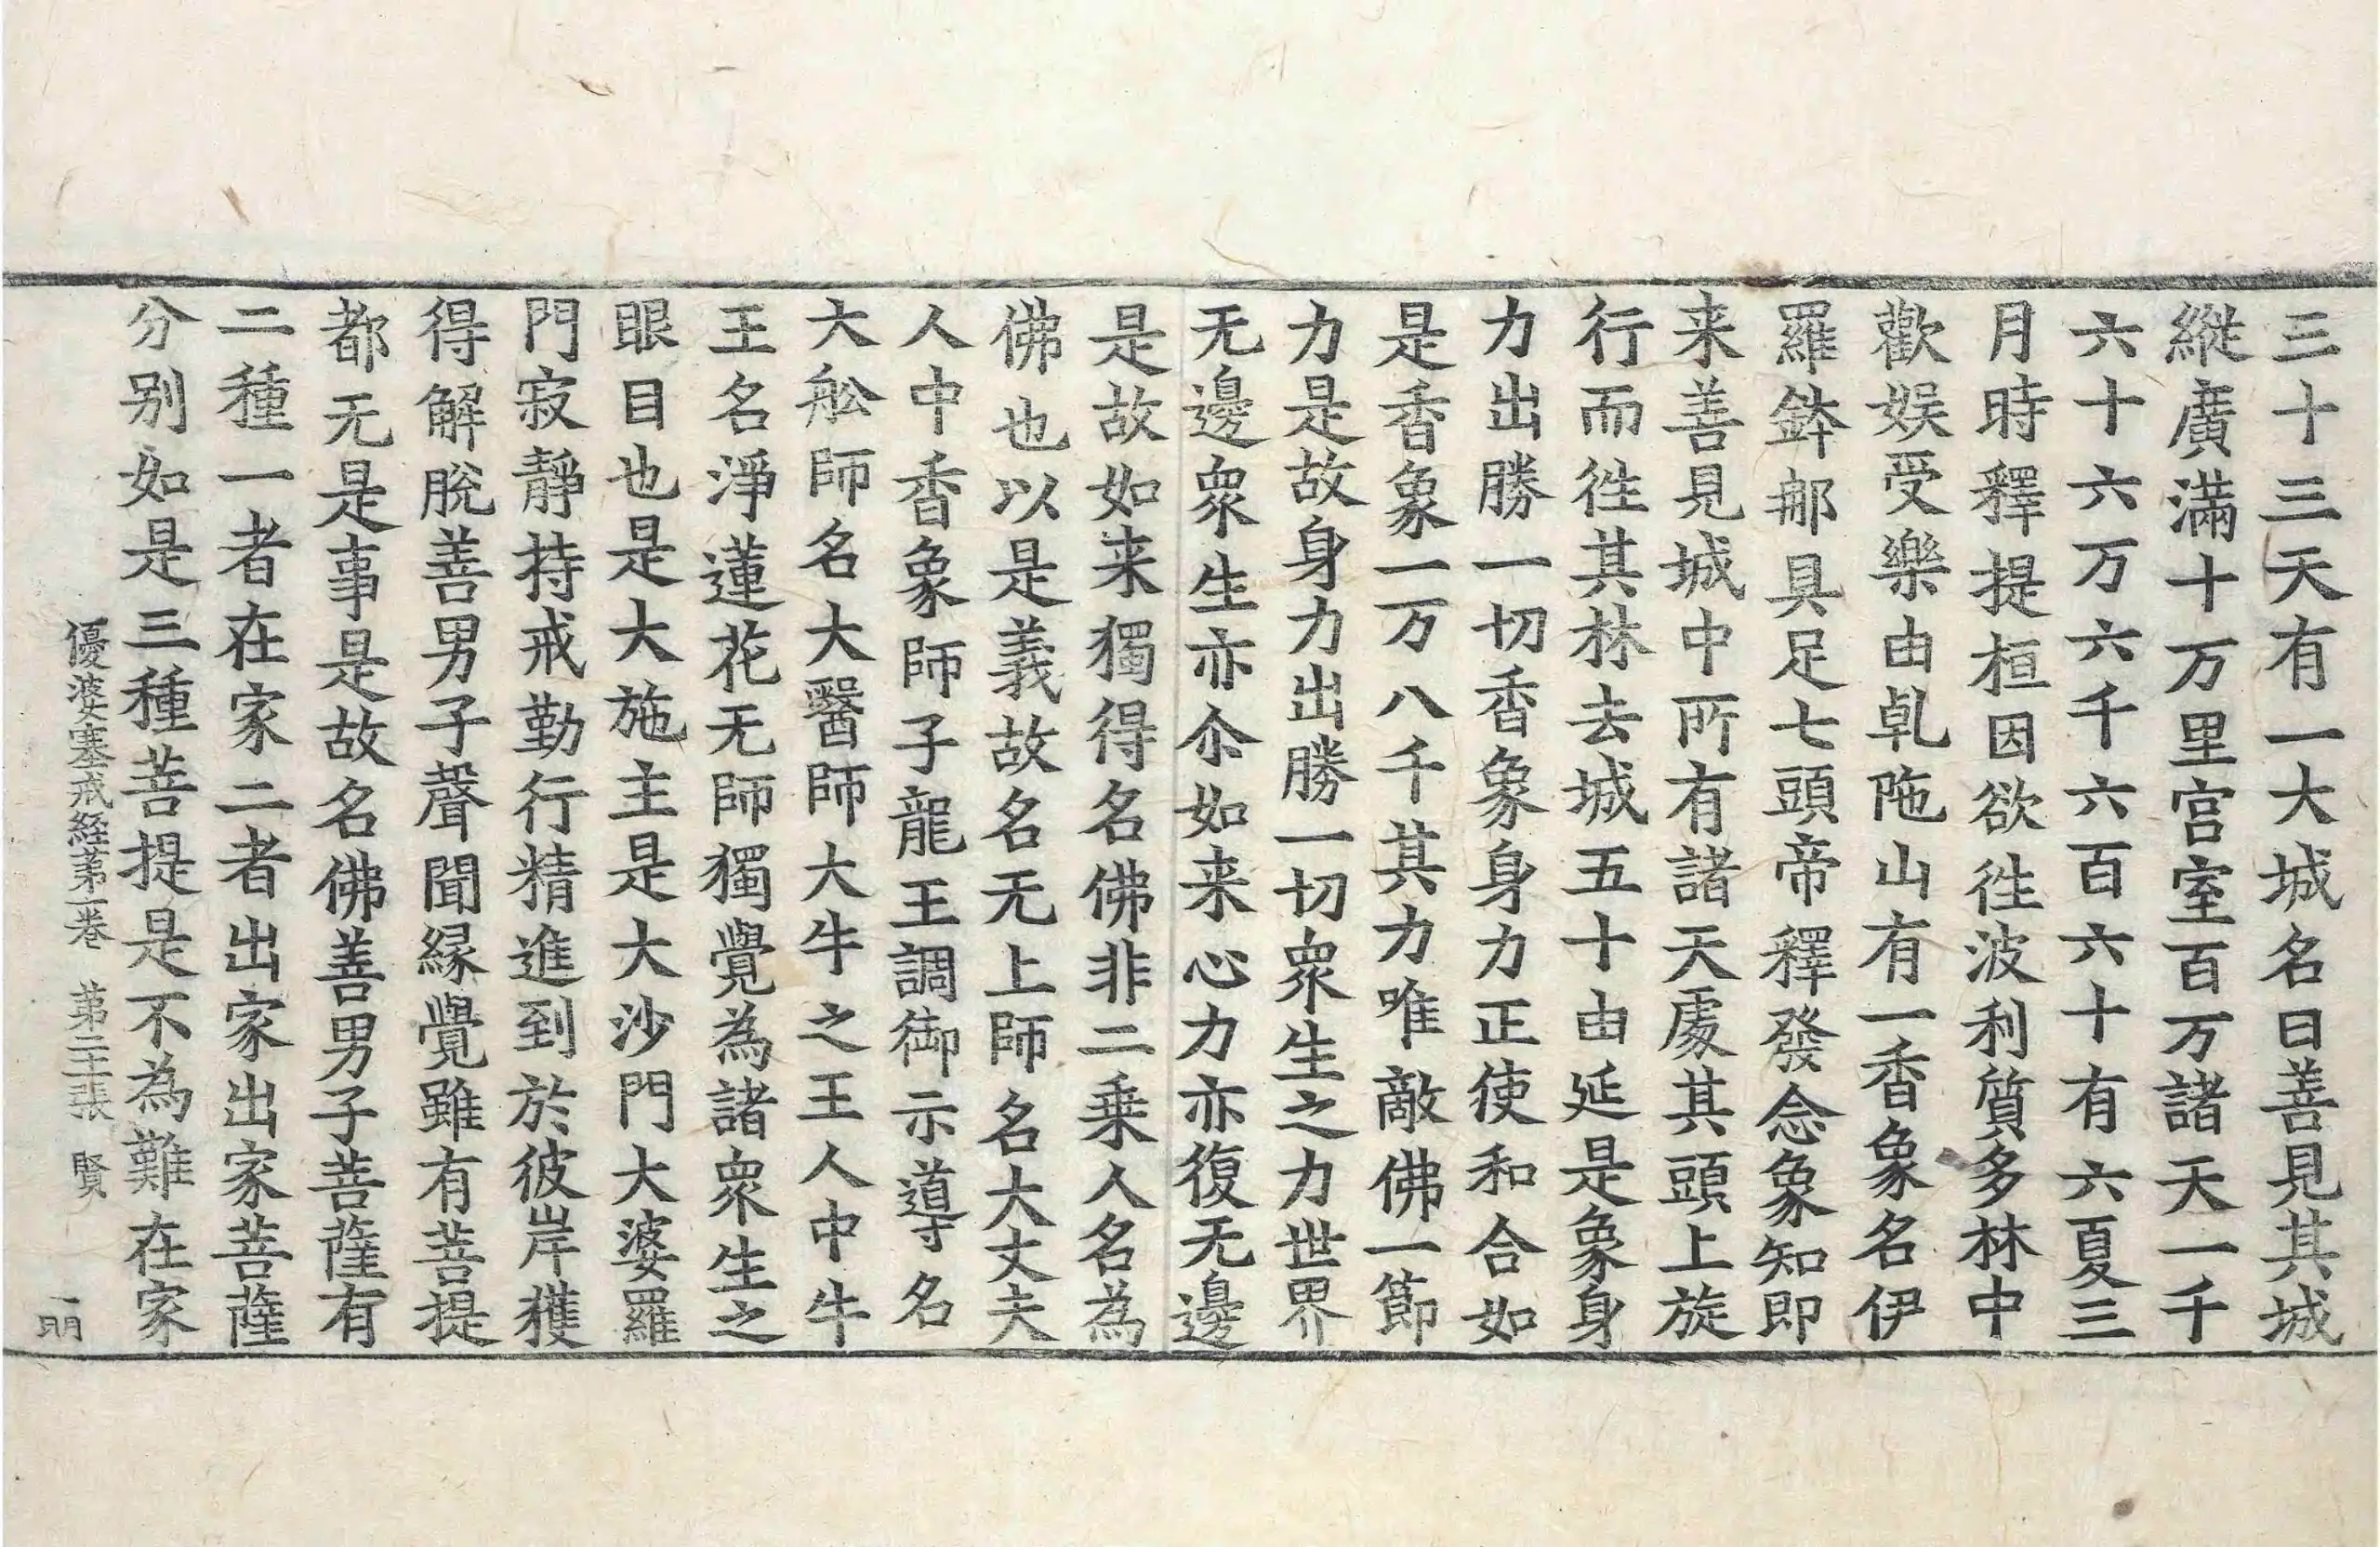 三十三天有一大城名曰善見其城
縱廣滿十万里宫室百万諸天一千
六十六万六千六百六十有六夏三
月時釋提桓因欲徃波利質多林中
歡娛受樂由乹陁山有一香象名伊
羅鉢那具足七頭帝釋發念象知即
来善見城中所有諸天處其頭上旋
行而徃其林去城五十由延是象身
力出勝一切香象身力正使和合如
是香象一万八千其力唯敵佛一節
力是故身力出勝一切衆生之力世界
无邊衆生亦尒如来心力亦復无邊
是故如来獨得名佛非二乗人名為
佛也以是義故名无上師名大丈夫
人中香象師子龍王調御示導名
大舩師名大醫師大牛之王人中牛
王名淨蓮花无師獨覺為諸衆生之
眼目也是大施主是大沙門大婆羅
門寂靜持戒勤行精進到於彼岸獲
得解脫善男子聲聞縁覺雖有菩提
都无是事是故名佛善男子菩薩有
二種一者在家二者出家出家菩薩
分别如是三種菩提是不為難在家
優婆塞戒経苐一巻 苐二十張 賢